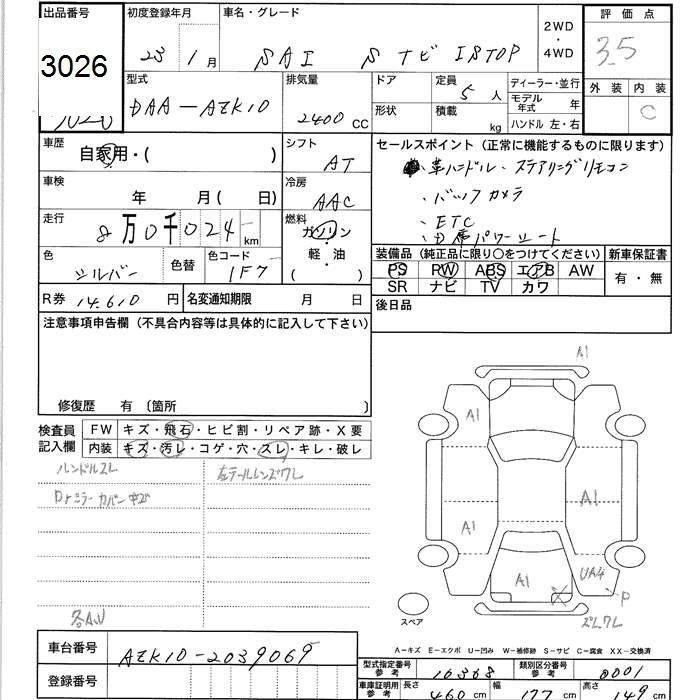 出品番号 初度登録年月 車名・グレード 2WD・4WD 評価点
3026 23 1月 SAI S ナビ ISTOP 3.5
型式 排気量 ドア 定員 ディーラー・並行 外装 内装
DAA-AZK10 2400 CC 5人 モデル年式 年 C
形状 積載 kg ハンドル 左・右
車歴 自家用・( ) シフト AT セールスポイント (正常に機能するものに限ります)
革ハンドル・ステアリングリモコン
車検 年 月( 日) 冷房 AAC ・バックカメラ
・ETC
走行 8万0千024km 燃料 ガソリン・軽・油 ( ) ・D席パワーシート
色 シルバー 色替 色コード 1F7 装備品 (純正品に限り○をつけてください) 新車保証書
PS PW ABS エアB AW 有・無
SR ナビ TV カワ
R券 14.610 円 名変通知期限 月 日 後日品
注意事項申告欄 (不具合内容等は具体的に記入して下さい)
修復歴 有 〔箇所 〕
検査員記入欄 FW キズ・飛石・ヒビ割・リペア跡・X要
内装 キズ・汚レ・コゲ・穴・スレ・キレ・破レ
ハンドルスレ 左テールレンズワレ
Drミラーカバーキズ
各A,U
A1
A1
A1 A1
A1 UA4
P
スペア ズレ,ワレ
A-キズ E-エクボ U-凹み W-補修跡 S-サビ C-腐食 XX-交換済
車台番号 AZK10-2039069 型式指定番号 参考 16368 類別区分番号 参考 0001
登録番号 車庫証明用 参考 長さ 460 cm 幅 177 cm 高さ 149 cm